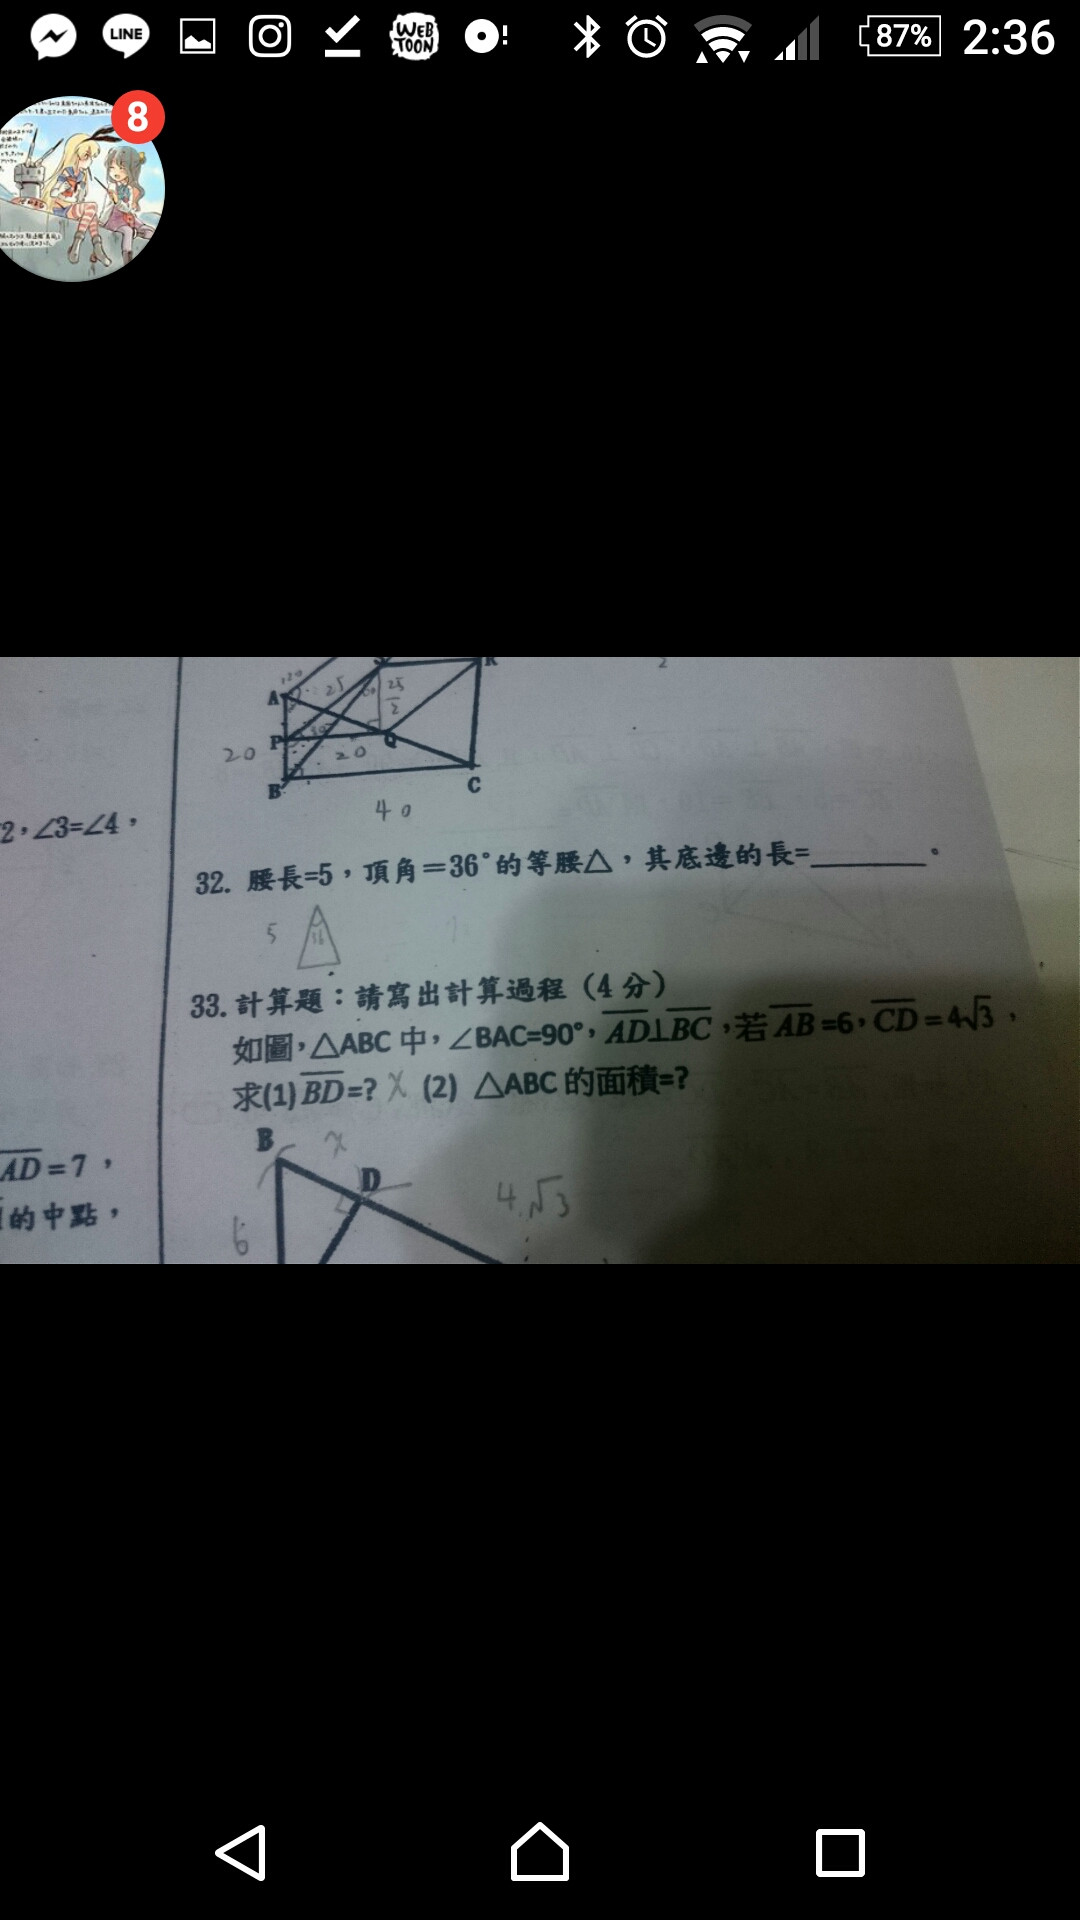 LINE
WEB
TOON
87%
2:36
8
A
P
B
C
Q
R
25
25
2
20
20
40
2
2,∠3=∠4,
32. 腰長=5,頂角=36°的等腰△,其底邊的長=________。
5
36
33. 計算題:請寫出計算過程(4分)
如圖,△ABC 中,∠BAC=90°,AD⊥BC,若 AB=6,CD=4√3,
求(1) BD=? x (2) △ABC 的面積=?
AD=7,
的中點,
B
x
D
4√3
6